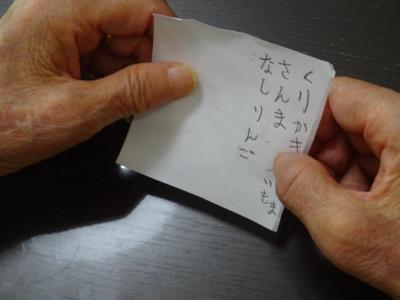 くりかき いもま
さんま
なし りんご